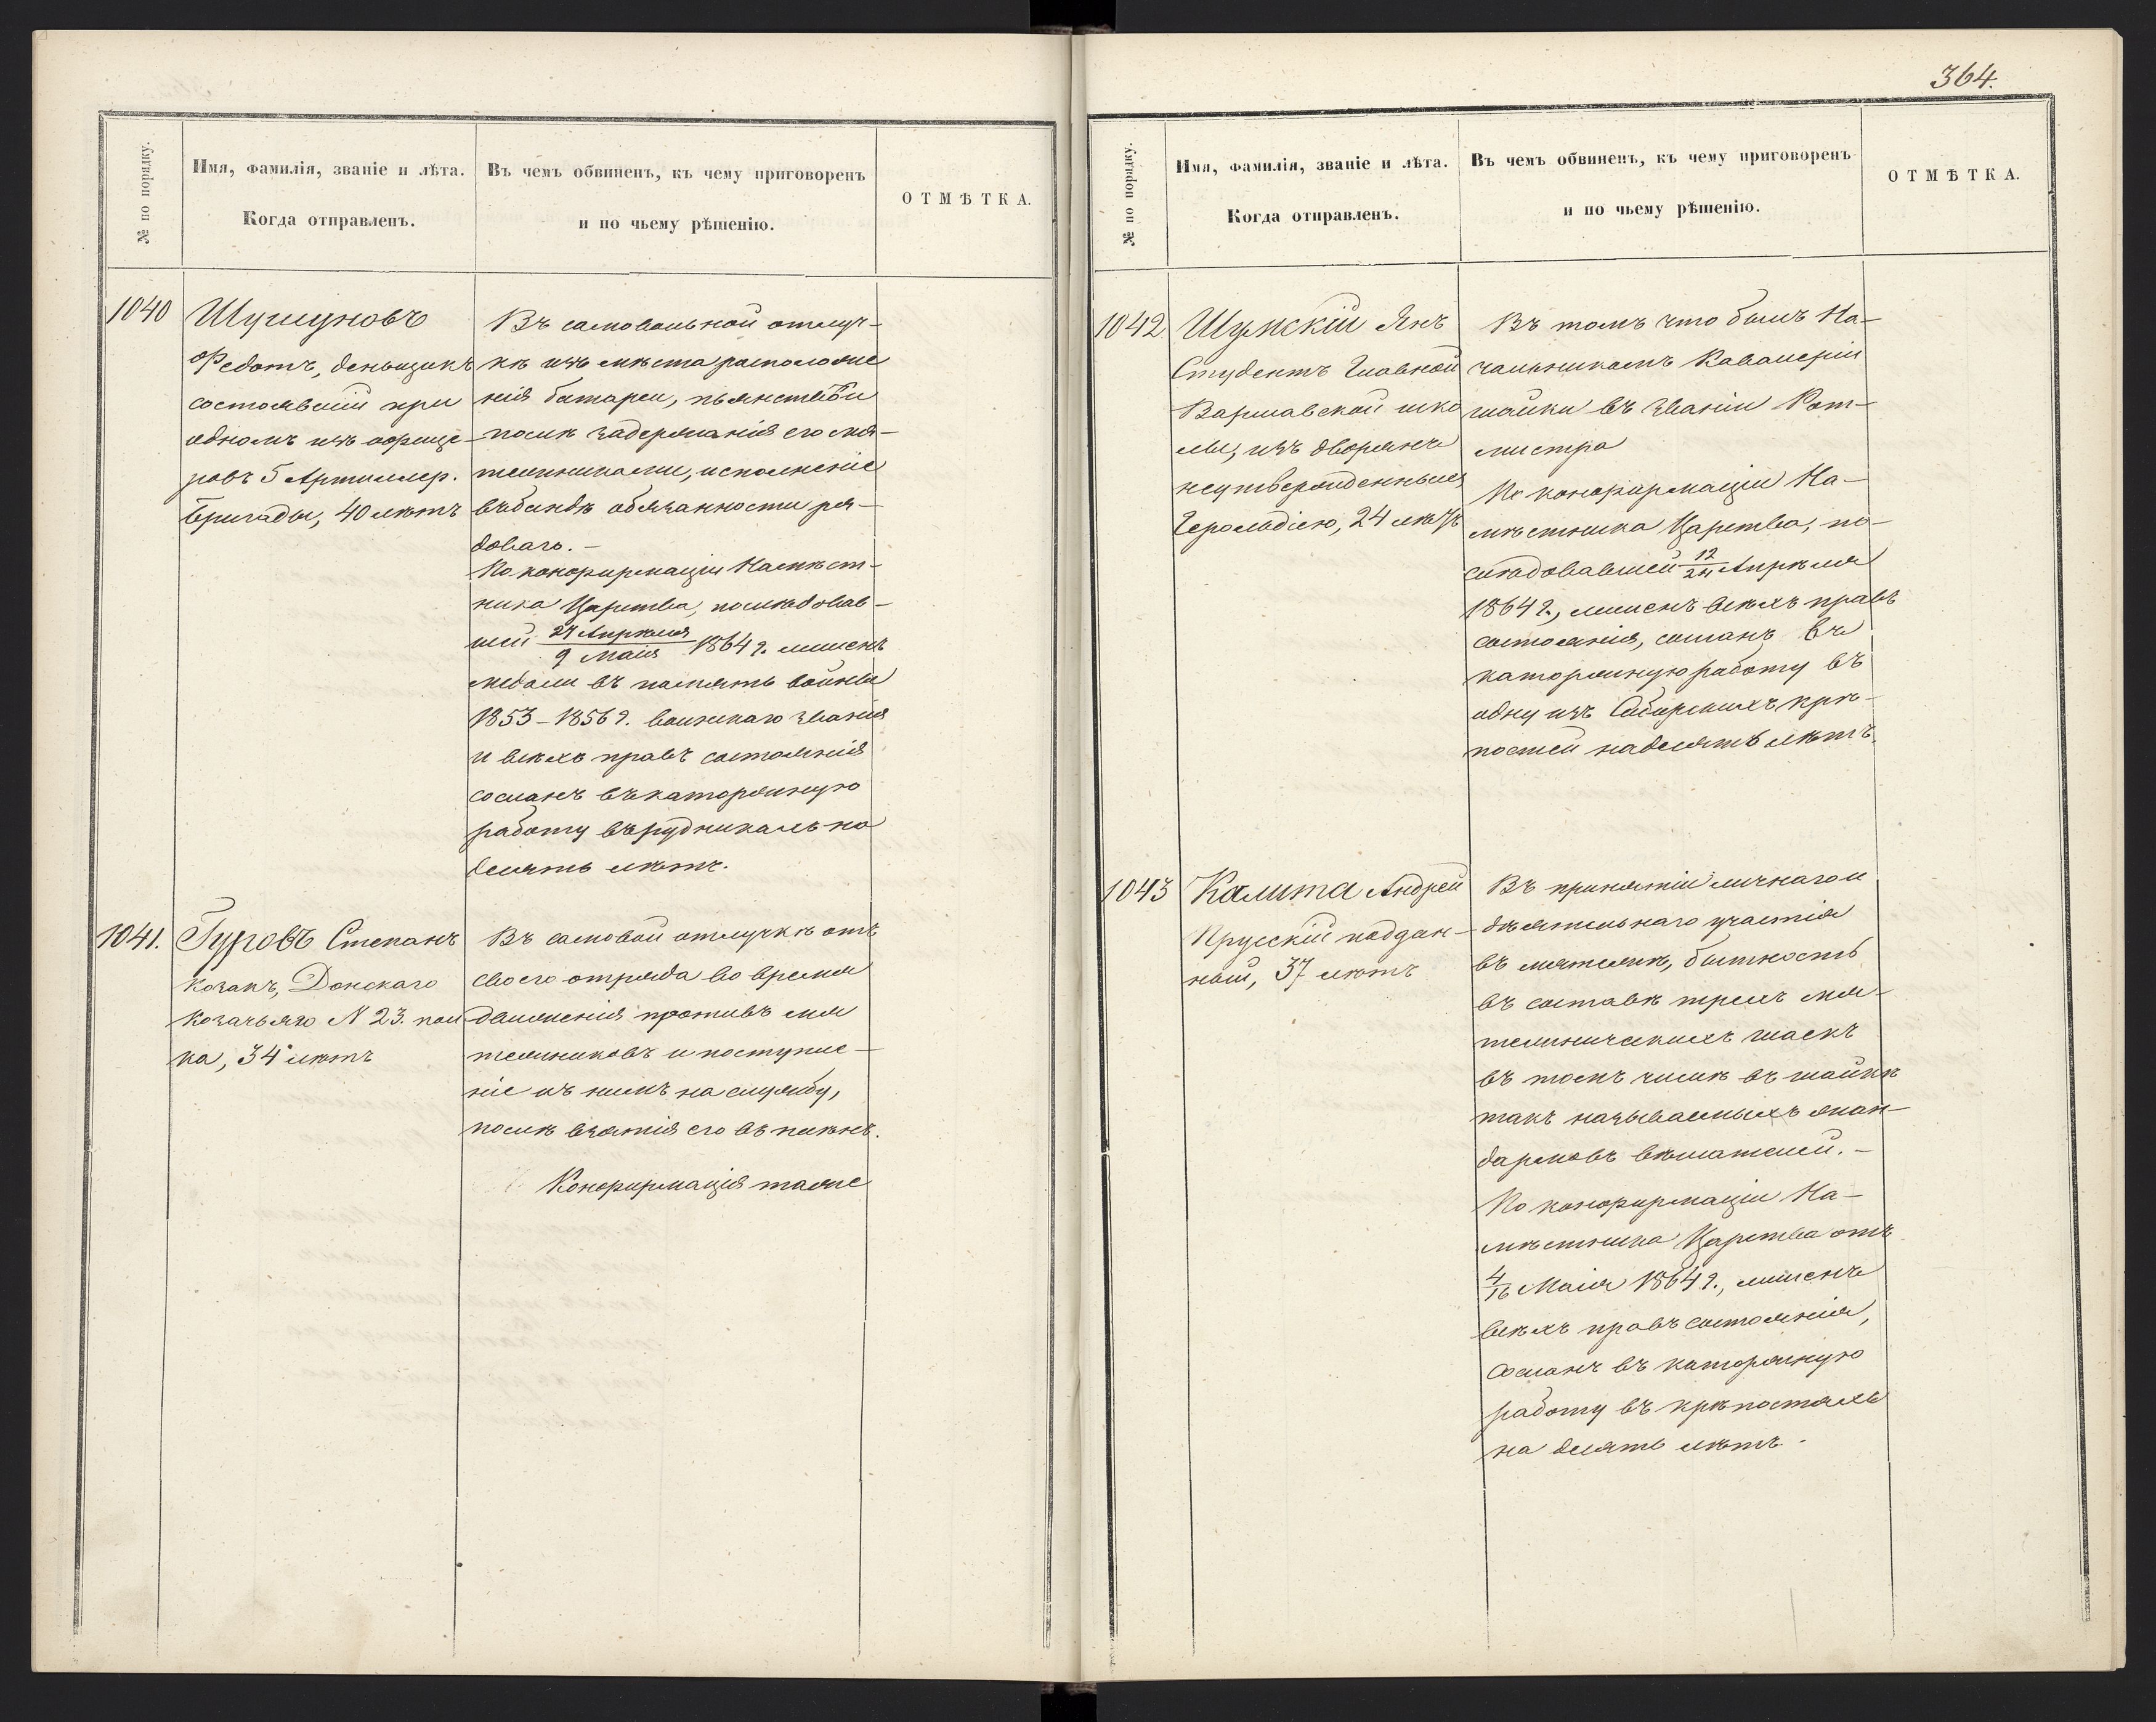 364.
№ по порядку.
Имя, фамилія, званіе и лѣта.
Когда отправленъ.
Въ чемъ обвиненъ, къ чему приговоренъ
и по чьему рѣшенію.
ОТМѢТКА.
1040
Шушуновъ
Федотъ, деньщикъ
состоявшій при
одномъ изъ офице-
ровъ 5 Артиллер.
бригады, 40 лѣтъ
Въ самовольной отлуч-
кѣ изъ мѣста расположе
нія батареи, пьянствѣ и
послѣ задержанія его мя-
тежниками, исполненіе
въ бандѣ обязанности ря-
доваго.-
По конфирмаціи Намѣст-
ника Царства, послѣдовав-
шей 27 Апрѣля / 9 Маія 1864 г. лишенъ
медали въ память войны
1853-1856 г. воинскаго званія
и всѣхъ правъ состоянія
сосланъ въ каторжную
работу въ рудникахъ на
десять лѣтъ.
1041.
Гуровъ Степанъ
Козакъ, Донскаго
Козачьяго N 23. пол
ка, 34 лѣтъ
Въ самовой отлучкѣ отъ
своего отряда во время
движенія противъ мя
тежниковъ и поступле-
ніе къ нимъ на службу,
послѣ взятія его въ плѣнъ.
Конфирмація таже
№ по порядку.
Имя, фамилія, званіе и лѣта.
Когда отправленъ.
Въ чемъ обвиненъ, къ чему приговоренъ
и по чьему рѣшенію.
ОТМѢТКА.
1042.
Шумскій Янъ
Студентъ Главной
Варшавской шко
лы, изъ дворянъ
неутвержденныхъ
Герольдіею, 24 лѣтъ
Въ томъ что былъ На-
чальникомъ Кавалеріи
шайки въ званіи Рот-
мистра
По конфирмаціи На-
мѣстника Царства, по-
слѣдовавшей 12/24 Апрѣля
1864 г., лишенъ всѣхъ правъ
состоянія, сосланъ въ
каторжную работу въ
одну изъ Сибирскихъ крѣ-
постей на десять лѣтъ.
1043
Калита Андрей
Прусскій поддан-
ный, 37 лѣтъ
Въ принятіи личнаго и
дѣятельнаго участія
въ мятежѣ, бытность
въ составѣ трехъ мя-
тежническихъ шаекъ
въ томъ числѣ въ шайкѣ
такъ называемыхъ жан-
дармовъ вѣшателей.-
По конфирмаціи На-
мѣстника Царства отъ
4/16 Маія 1864 г., лишенъ
всѣхъ правъ состоянія,
сосланъ въ каторжную
работу въ крѣпостяхъ
на десять лѣтъ.